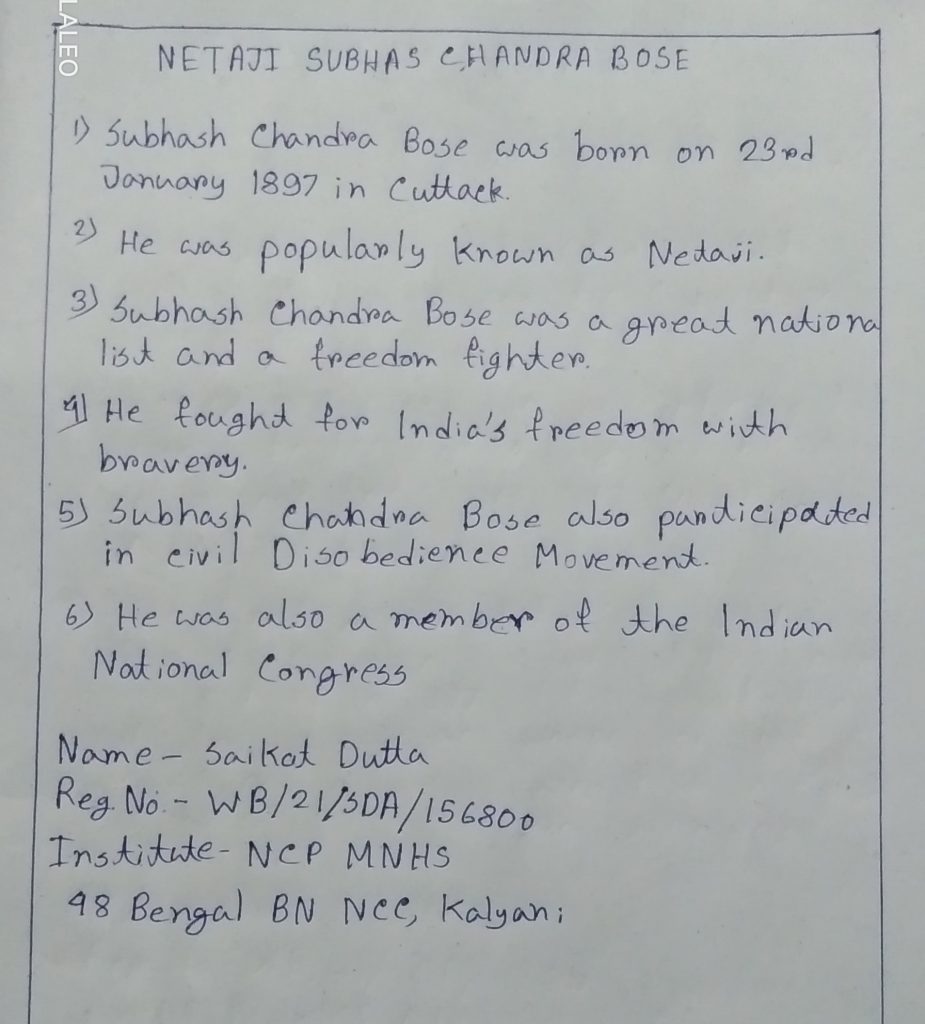 LALEO
NETAJI SUBHAS CHANDRA BOSE
1) Subhash Chandra Bose was born on 23rd
January 1897 in Cuttack.
2) He was popularly known as Netaji.
3) Subhash Chandra Bose was a great nationa
list and a freedom fighter.
4) He fought for India's freedom with
bravery.
5) Subhash Chandra Bose also participated
in civil Disobedience Movement.
6) He was also a member of the Indian
National Congress
Name - Saikat Dutta
Reg. No. - WB/21/SDA/156800
Institute - NCP MNHS
48 Bengal BN NCC, Kalyani